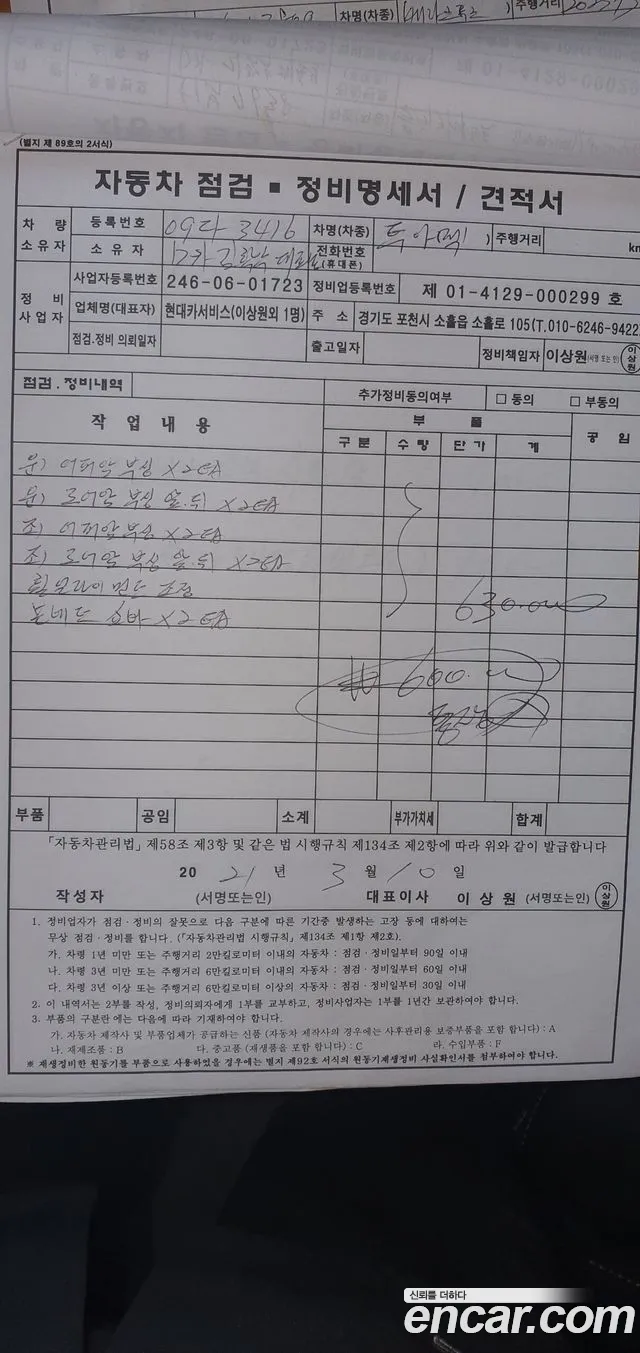 차명(차종) 주행거리
(별지 제 89호의 2서식)
자동차 점검 ■ 정비명세서 / 견적서
차 량 소유자 등록번호 09다 3416 차명(차종) 투아렉 ) 주행거리 km
소유자 전화번호 (휴대폰)
정비 사업자 사업자등록번호 246-06-01723 정비업등록번호 제 01-4129-000299 호
업체명(대표자) 현대카서비스(이상원외 1명) 주 소 경기도 포천시 소흘읍 소흘로 105(T.010-6246-9422)
점검.정비 의뢰일자 출고일자 정비책임자 이상원 (서명 또는 인) 이상원
점검 . 정비내역 추가정비동의여부 □ 동의 □ 부동의
작 업 내 용 부 품 공 임
구 분 수 량 단 가 계
운) 어퍼암 부싱 X2EA
운) 로어암 부싱 앞.뒤 X2EA
조) 어퍼암 부싱 X2EA
조) 로어암 부싱 앞.뒤 X2EA
휠 얼라이먼트 조정
본네트 쇼바 X2EA 630.000
₩ 600.000
부품 공임 소계 부가가치세 합계
「자동차관리법」 제58조 제3항 및 같은 법 시행규칙 제134조 제2항에 따라 위와 같이 발급합니다
20 21 년 3 월 10 일
작성자 (서명또는인) 대표이사 이 상 원 (서명또는인) 이상원
1. 정비업자가 점검 · 정비의 잘못으로 다음 구분에 따른 기간중 발생하는 고장 등에 대하여는
무상 점검 · 정비를 합니다. (「자동차관리법 시행규칙」 제134조 제1항 제2호).
가. 차령 1년 미만 또는 주행거리 2만킬로미터 이내의 자동차 : 점검 · 정비일부터 90일 이내
나. 차령 3년 미만 또는 주행거리 6만킬로미터 이내의 자동차 : 점검 · 정비일부터 60일 이내
다. 차령 3년 이상 또는 주행거리 6만킬로미터 이상의 자동차 : 점검 · 정비일부터 30일 이내
2. 이 내역서는 2부를 작성, 정비의뢰자에게 1부를 교부하고, 정비사업자는 1부를 1년간 보관하여야 합니다.
3. 부품의 구분란 에는 다음에 따라 기재하여야 합니다.
가. 자동차 제작사 및 부품업체가 공급하는 신품 (자동차 제작사의 경우에는 사후관리용 보증부품을 포함 합니다) : A
나. 재제조품 : B 다. 중고품 (재생품을 포함 합니다) : C 라. 수입부품 : F
※ 재생정비한 원동기를 부품으로 사용하였을 경우에는 별지 제92호 서식의 원동기재생정비 사실확인서를 첨부하여야 합니다.
신뢰를 더하다
encar.com